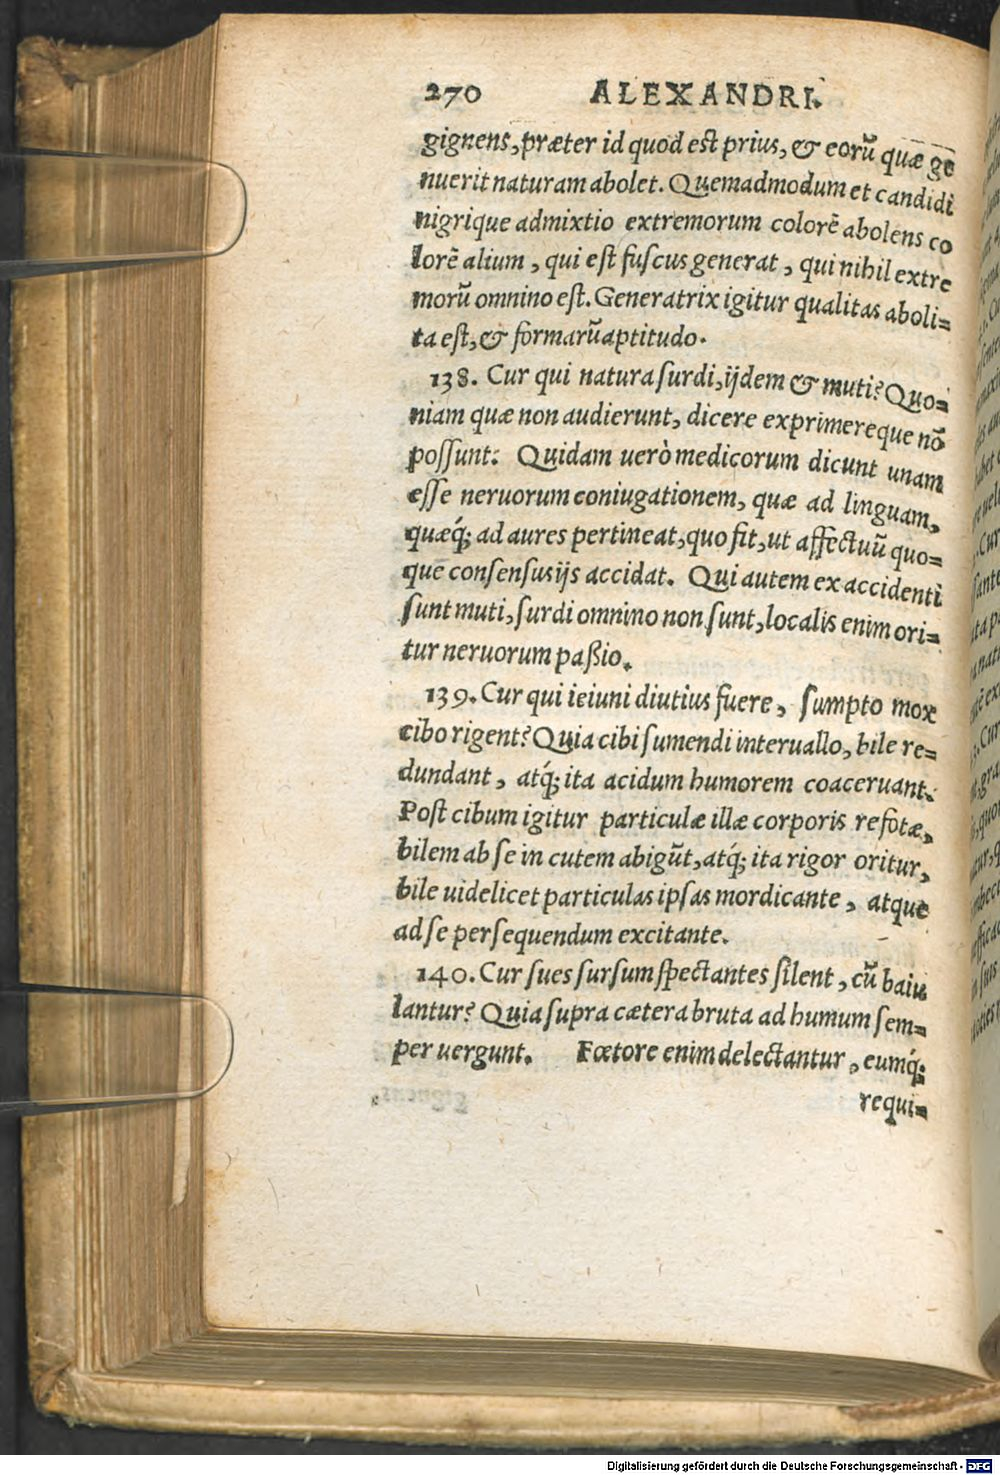 270 ALEXANDRI.
gignens, præter id quod est prius, & eorũ quæ ge
nuerit naturam abolet. Quemadmodum et candidi
nigrique admixtio extremorum colorẽ abolens co
lorẽ alium, qui est fuſcus generat, qui nihil extre
morũ omnino eſt. Generatrix igitur qualitas aboli-
ta eſt, & formarũ aptitudo.
138. Cur qui natura ſurdi, ijdem & muti? Quo-
niam quæ non audierunt, dicere exprimereque nõ
poſſunt: Quidam uerò medicorum dicunt unam
eſſe neruorum coniugationem, quæ ad linguam,
quæq́; ad aures pertineat, quo fit, ut affectuũ quo-
que conſenſus ijs accidat. Qui autem ex accidenti
ſunt muti, ſurdi omnino non ſunt, localis enim ori-
tur neruorum paſsio.
139. Cur qui ieiuni diutius fuere, ſumpto mox
cibo rigent? Quia cibi ſumendi interuallo, bile re-
dundant, atq́; ita acidum humorem coaceruant.
Poſt cibum igitur particulæ illæ corporis refotæ,
bilem ab ſe in cutem abigũt, atq́; ita rigor oritur,
bile uidelicet particulas ipſas mordicante, atque
ad ſe perſequendum excitante.
140. Cur ſues ſurſum ſpectantes ſilent, cũ baiu
lantur? Quia ſupra cætera bruta ad humum ſem-
per uergunt. Fœtore enim delectantur, eumq́;
requi-
Digitalisierung gefördert durch die Deutsche Forschungsgemeinschaft - DFG